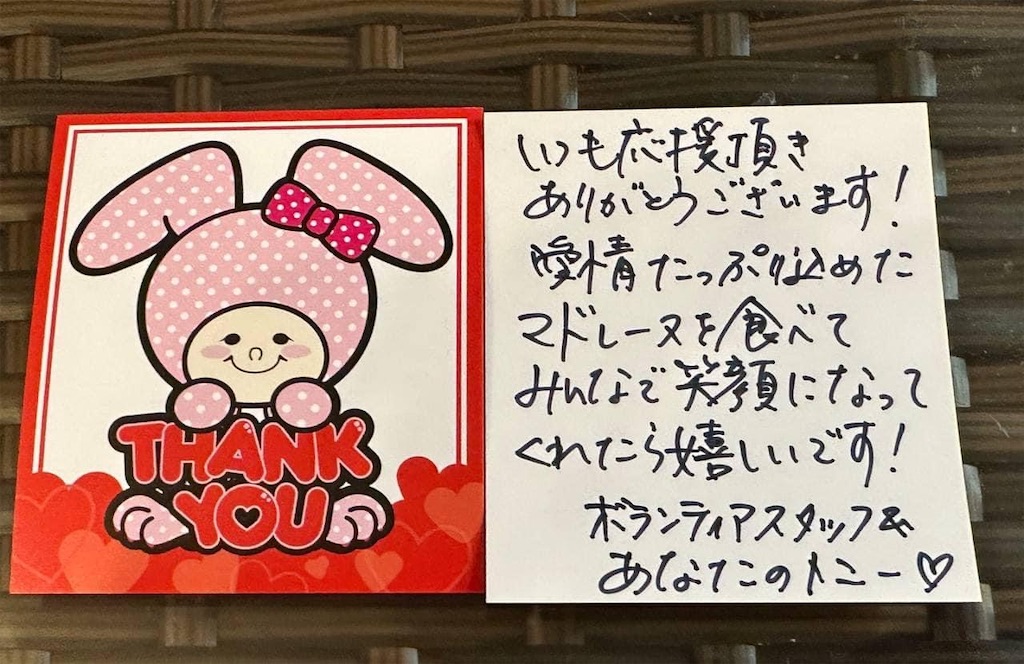 THANK
YOU
いつも応援頂き
ありがとうございます!
愛情たっぷり込めた
マドレーヌを食べて
みんなで笑顔になって
くれたら嬉しいです!
ボランティアスタッフ&
あなたのトニー♡